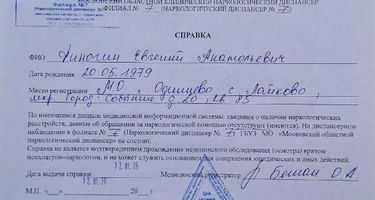 ОБЛАСТНОЙ КЛИНИЧЕСКИЙ НАРКОЛОГИЧЕСКИЙ ДИСПАНСЕР
ФИЛИАЛ № 7 (НАРКОЛОГИЧЕСКИЙ ДИСПАНСЕР № 7)
СПРАВКА
ФИО Евгений Анатольевич
Дата рождения 20.05.1979
Место регистрации М.О., Одинцово, с. Лайково,
мкр. Город-Событие д. 20, кв. 85
По имеющимся данным медицинской информационной системы сведения о наличии наркологических
расстройств, данные об обращении за наркологической помощью отсутствуют (имеются). На диспансерном
наблюдении в филиале № 7 (Наркологический диспансер № 7) ГБУЗ МО «Московский областной
наркологический диспансер» не состоит.
Справка не является подтверждением прохождения медицинского обследования (осмотра) врачом-
психиатром-наркологом, и не может служить основанием совершения юридических и иных действий.
Дата выдачи 12.01.26 Медицинский регистратор
М.П. «__» 20 г.
12.01.26